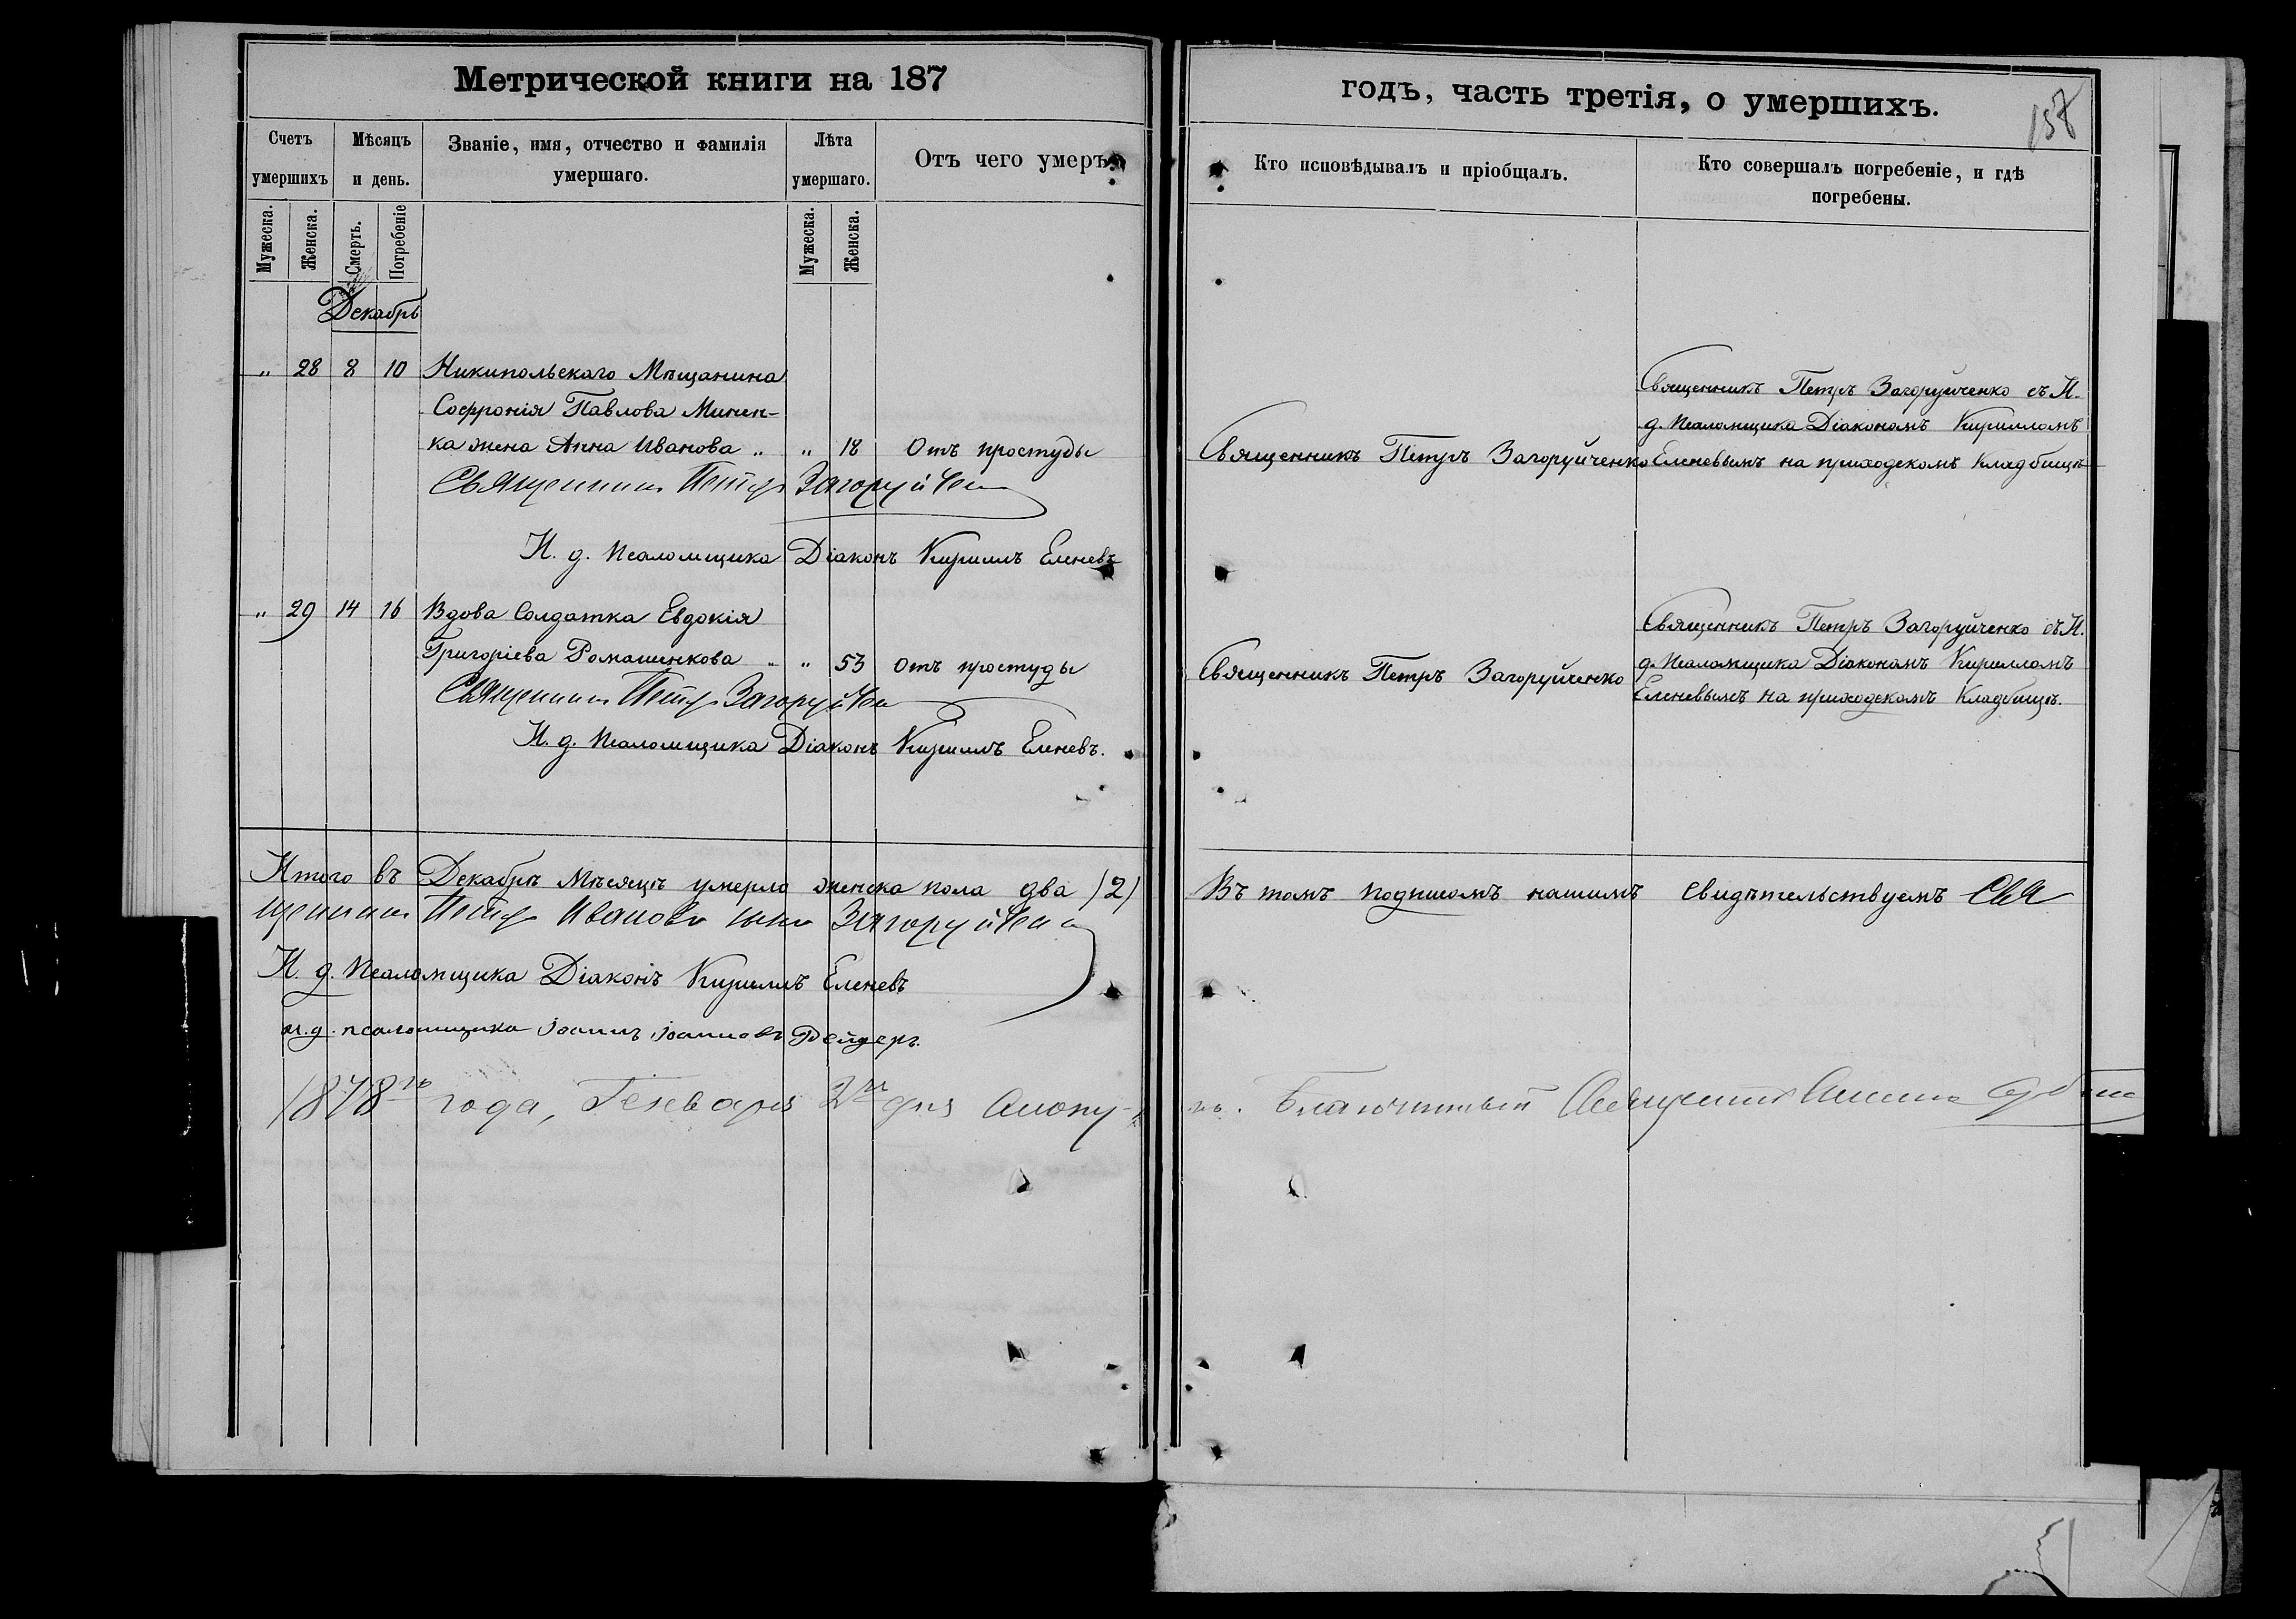 Метрической книги на 187
годъ, часть третія, о умершихъ.
157
Счетъ умершихъ
Мѣсяцъ и день.
Званіе, имя, отчество и фамилія умершаго.
Лѣта умершаго.
Отъ чего умеръ.
Кто исповѣдывалъ и пріобщалъ.
Кто совершалъ погребеніе, и гдѣ погребены.
Мужеска.
Женска.
Смерть.
Погребеніе
Мужеска.
Женска.
Декабрь
„ 28 8 10 Никипольскаго Мѣщанина
Софронія Павлова Минен-
ка жена Анна Иванова „ „ 18 Отъ простуды
Священникъ Петръ Загоруйченко
Священникъ Петръ Загоруйченко съ И.
д. Псаломщика Діакономъ Кирилломъ
Еленевымъ на приходскомъ кладбищѣ
Священникъ Петръ Загоруйченко
И. д. Псаломщика Діаконъ Кириллъ Еленевъ
„ 29 14 16 Вдова Солдатка Евдокія
Григоріева Ромашенкова „ „ 53 Отъ простуды
Священникъ Петръ Загоруйченко
Священникъ Петръ Загоруйченко съ И.
д. Псаломщика Діакономъ Кирилломъ
Еленевымъ на приходскомъ Кладбищѣ.
Священникъ Петръ Загоруйченко
И. д. Псаломщика Діаконъ Кириллъ Еленевъ.
Итого въ Декабрѣ Мѣсяцѣ умерло женска пола два (2)
Въ томъ подписомъ нашимъ свидѣтельствуемъ Свя
щенникъ Петръ Ивановъ сынъ Загоруйченко
И. д. Псаломщика Діаконъ Кириллъ Еленевъ
и. д. псаломщика Іоаннъ Іоанновъ
1878го года, Генваря 2го дня
Благочинный Священникъ